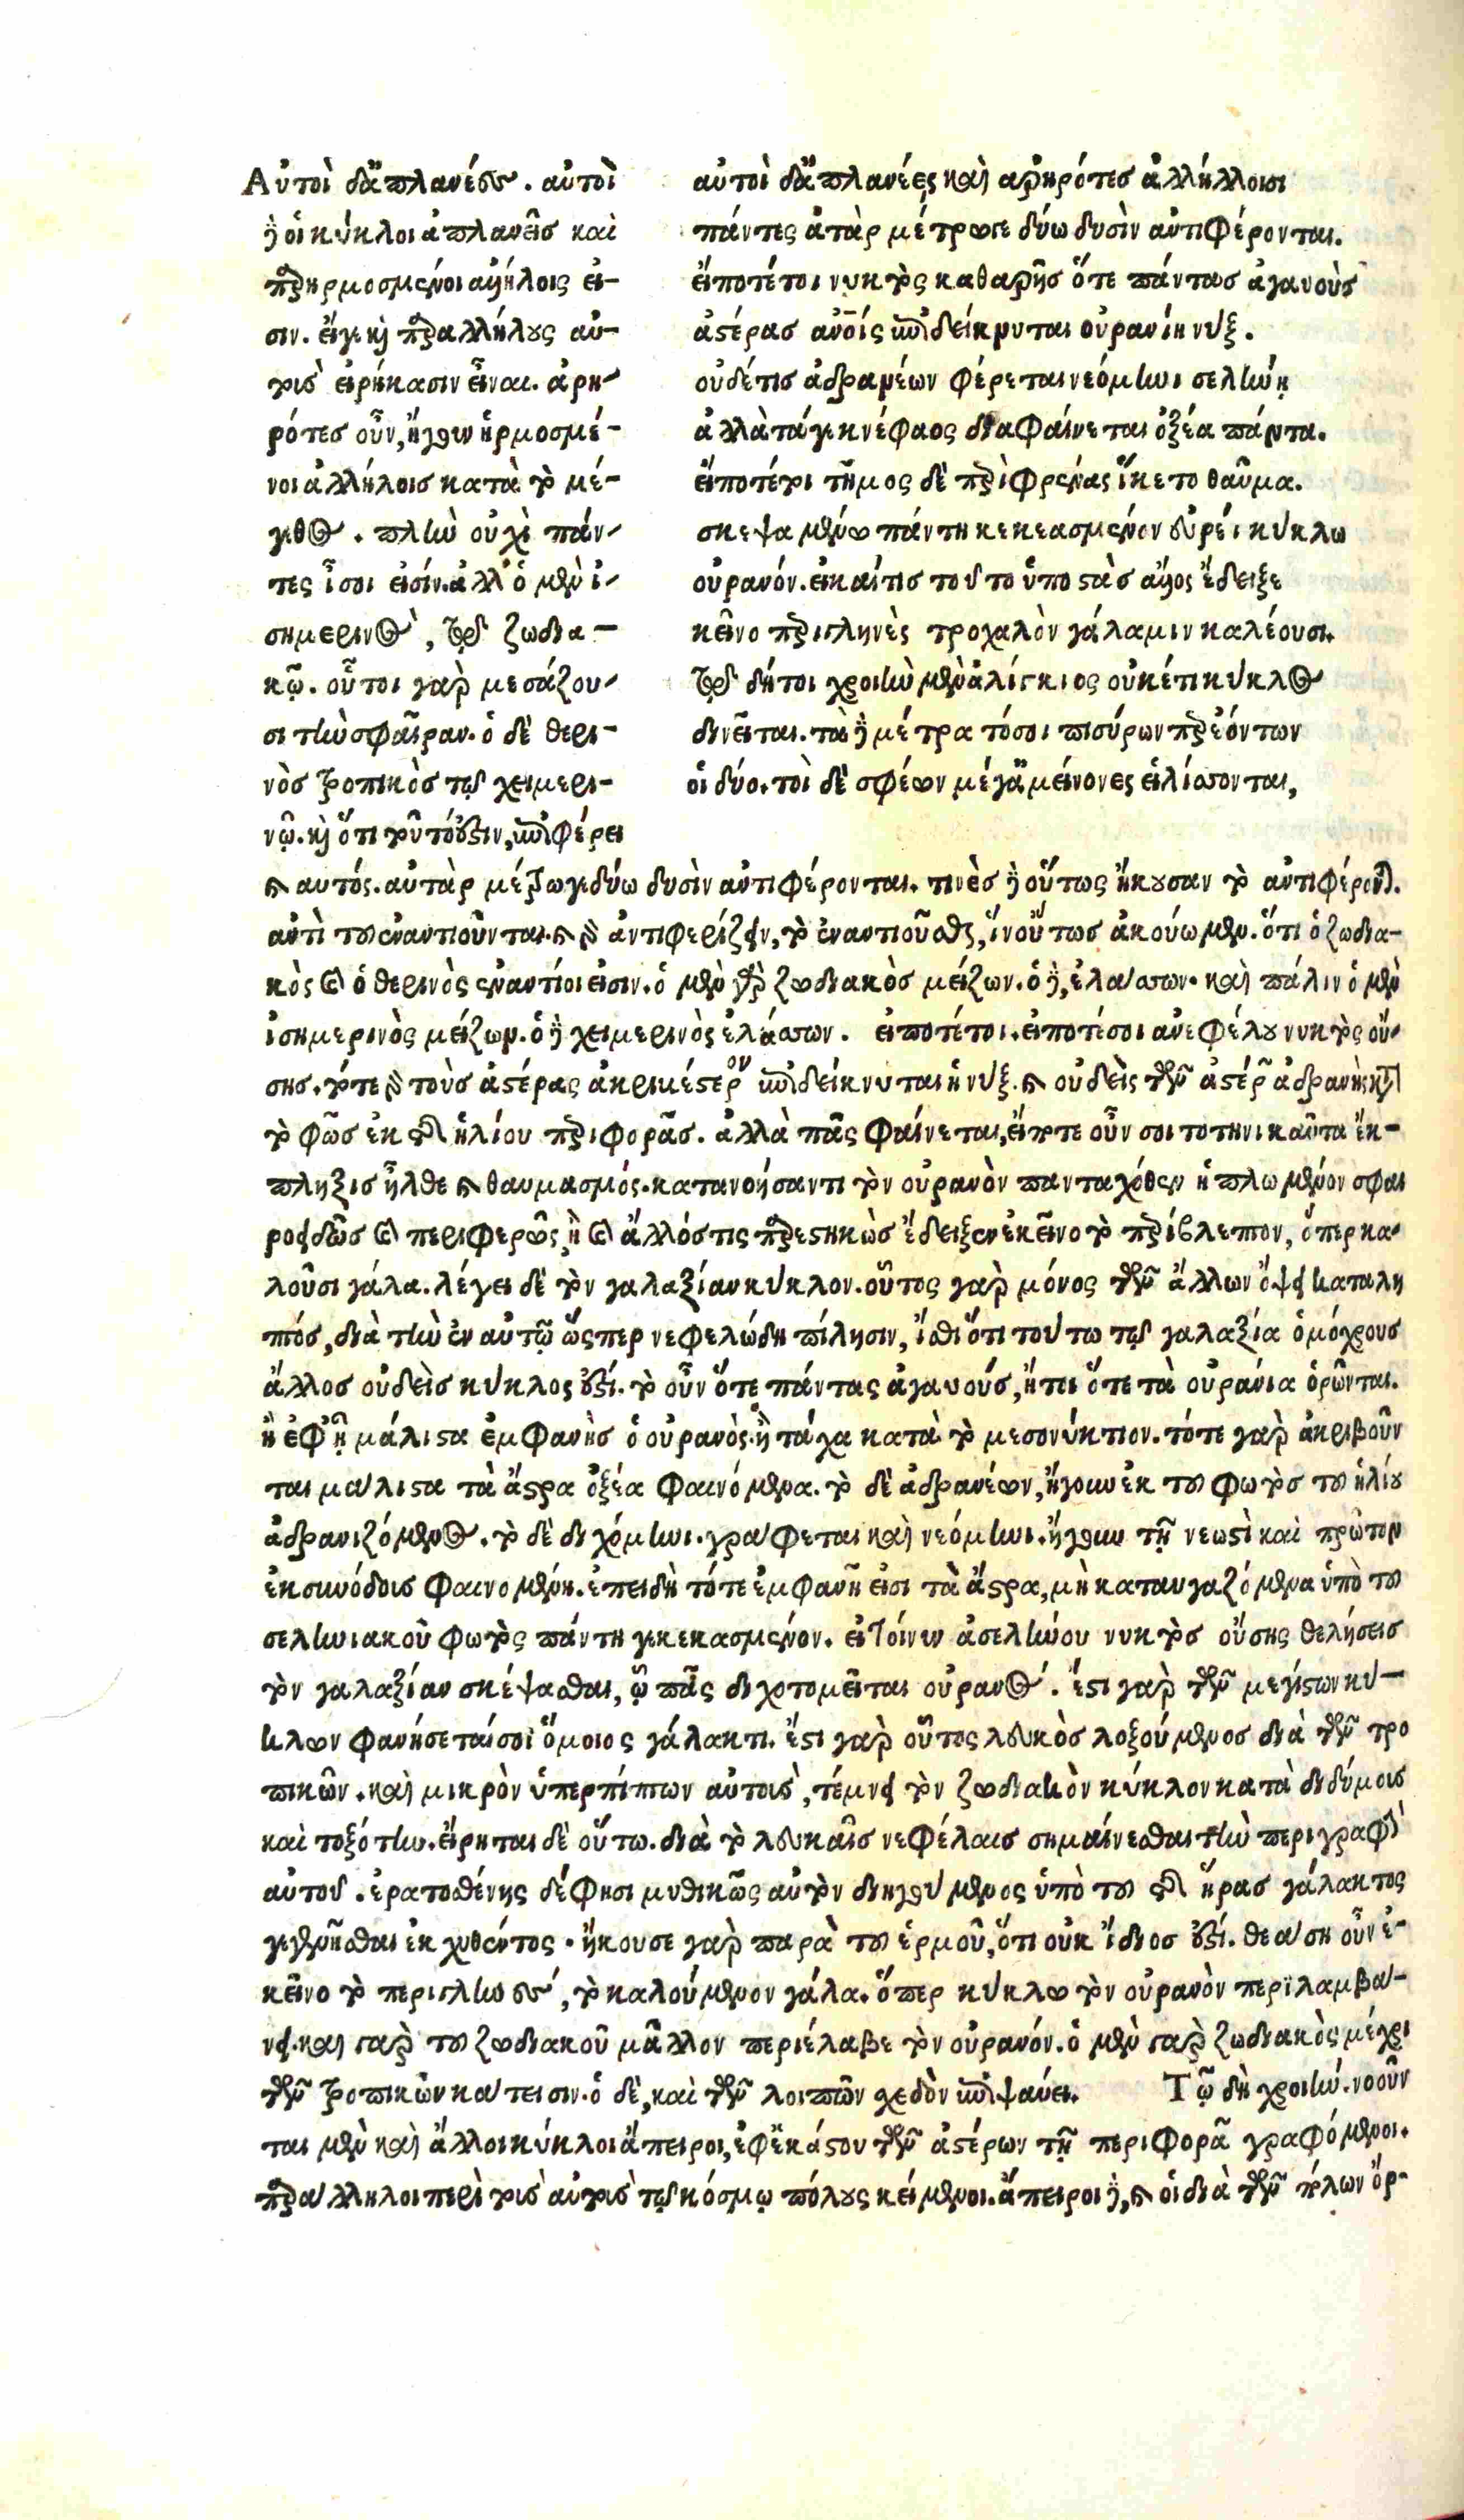 Αὐτοὶ δ' ἀπλανέες. αὐτοὶ
δὲ οἱ κύκλοι ἀπλανεῖς καὶ
προσηρμοσμένοι ἀλλήλοις εἰ-
σιν. εἴγε καὶ παραλλήλους αὐ-
τοὺς εἰρήκασιν εἶναι. ἀρη-
ρότες οὖν, ἤγουν ἡρμοσμέ-
νοι ἀλλήλοις κατὰ τὸ μέ-
γεθος. πλὴν οὐχὶ πάν-
τες ἶσοι εἰσίν. ἀλλ' ὁ μὲν ἰ-
σημερινὸς, τῷ ζωδια-
κῷ. οὗτοι γὰρ μεσάζου-
σι τὴν σφαῖραν. ὁ δὲ θερι-
νὸς τροπικὸς τῷ χειμερι-
νῷ. καὶ ὅτι τοῦτό ἐστιν, ἐπιφέρει
αὐτοὶ δ' ἀπλανέες καὶ ἀρηρότες ἀλλήλοισι
πάντες ἀτὰρ μέτρωγε δύω δυσὶν ἀντιφέρονται.
εἴποτέ τοι νυκτὸς καθαρῆς ὅτε πάντας ἀγαυοὺς
ἀστέρας ἀνθρώποις ἐπιδείκνυται οὐρανίη νυξ.
οὐδέ τις ἀδρανέων φέρεται νεόμηνι σελήνῃ
ἀλλὰ τάγε κνέφαος διαφαίνεται ὀξέα πάντα.
εἴποτέ τοι τῆμος δὲ περὶ φρένας ἵκετο θαῦμα.
σκεψαμένω πάντη κεκεασμένον εὐρέι κύκλω
οὐρανόν. εἰ καί τις τοῦτο ὑποστὰς ἄλλος ἔδειξε
κεῖνο περιγληνὲς τροχαλὸν γάλα μιν καλέουσι.
τῷ δή τοι χροιὴν μὲν ἀλίγκιος οὐκέτι κύκλος
δινεῖται. τὰ δὲ μέτρα τόσοι πισύρων περ ἐόντων
οἱ δύο. τοὶ δὲ σφέων μέγ' ἀμείνονες εἱλίσσονται,
καὶ αυτός. αὐτὰρ μέτρω γε δύω δυσὶν ἀντιφέρονται. τινὲς δὲ οὕτως ἤκουσαν τὸ ἀντιφέρονται.
ἀντὶ τοῦ ἐναντιοῦνται. καὶ γὰρ ἀντιφερίζειν, τὸ ἐναντιοῦσθαι, ἵν' οὕτως ἀκούωμεν. ὅτι ὁ ζωδια-
κὸς καὶ ὁ θερινὸς ἐναντίοι εἰσιν. ὁ μὲν γὰρ ζωδιακὸς μείζων. ὁ δὲ, ἐλάσσων. καὶ πάλιν ὁ μὲν
ἰσημερινὸς μείζων. ὁ δὲ χειμερινὸς ἐλάσσων. εἰποτέτοι. εἰποτέ σοι ἀνεφέλου νυκτὸς οὔ-
σης. τότε γὰρ τοὺς ἀστέρας ἀκριβέστερον ἐπιδείκνυται ἡ νυξ. καὶ οὐδεὶς τῶν ἀστέρων ἀδρανὴς κατὰ
τὸ φῶς ἐκ τῆς ἡλίου περιφορᾶς. ἀλλὰ πᾶς φαίνεται, εἴποτε οὖν σοι τοτηνικαῦτα ἔκ-
πληξις ἦλθε καὶ θαυμασμός. κατανοήσαντι τὸν οὐρανὸν πανταχόθεν ἡπλωμένον σφαι
ροειδῶς καὶ περιφερῶς, ἢ καὶ ἄλλός τις παρεστηκὼς ἔδειξεν ἐκεῖνο τὸ περίβλεπτον, ὅπερ κα-
λοῦσι γάλα. λέγει δὲ τὸν γαλαξίαν κύκλον. οὗτος γὰρ μόνος τῶν ἄλλων ὄψει καταλη
πτός, διὰ τὴν ἐν αὐτῷ ὥσπερ νεφελώδη πίλησιν, ἴσθι ὅτι τούτω τῷ γαλαξία ὁμόχρους
ἄλλος οὐδεὶς κύκλος ἐστί. τὸ οὖν ὅτε πάντας ἀγαυούς, ἤτοι ὅτε τὰ οὐράνια ὁρῶνται.
ἢ ἐφ' ᾗ μάλιστα ἐμφανὴς ὁ οὐρανὸς. ἢ τάχα κατὰ τὸ μεσονύκτιον. τότε γὰρ ἀκριβοῦν
ται μάλιστα τὰ ἄστρα ὀξέα φαινόμενα. τὸ δὲ ἀδρανέων, ἤγουν ἐκ τοῦ φωτὸς τοῦ ἡλίου
ἀδρανιζόμενος. τὸ δὲ διχόμηνι. γράφεται καὶ νεόμηνι. ἤγουν τῇ νεωστὶ καὶ πρῶτον
ἐκ συνόδοις φαινομένη. ἐπειδὴ τότε ἐμφανῆ εἰσι τὰ ἄστρα, μὴ καταυγαζόμενα ὑπὸ τοῦ
σεληνιακοῦ φωτὸς πάντη γε κεκασμένον. εἰ τοίνυν ἀσελήνου νυκτὸς οὔσης θελήσεις
τὸν γαλαξίαν σκέψασθαι, ᾧ πᾶς διχοτομεῖται οὐρανός. ἔστι γὰρ τῶν μεγίστων κύ-
κλων φανήσεταί σοι ὅμοιος γάλακτι. ἔστι γὰρ οὗτος λευκὸς λοξούμενος διὰ τῶν τρο
πικῶν. καὶ μικρὸν ὑπερπίπτων αὐτοὺς, τέμνει τὸν ζωδιακὸν κύκλον κατὰ διδύμοις
καὶ τοξότην. εἴρηται δὲ οὕτω. διὰ τὸ λευκαῖς νεφέλαις σημαίνεσθαι τὴν περιγραφὴν
αὐτοῦ. ἐρατοσθένης δέ φησι μυθικῶς αὐτὸν διηγούμενος ὑπὸ τοῦ τῆς ἥρας γάλακτος
γεγενῆσθαι ἐκχυθέντος. ἤκουσε γὰρ παρὰ τοῦ ἑρμοῦ, ὅτι οὐκ ἴδιος ἐστί. θεάση οὖν ἐ-
κεῖνο τὸ περιγληνές, τὸ καλούμενον γάλα. ὅπερ κύκλω τὸν οὐρανὸν περϊλαμβά-
νει. καὶ γὰρ τοῦ ζωδιακοῦ μᾶλλον περιέλαβε τὸν οὐρανόν. ὁ μὲν γὰρ ζωδιακὸς μέχρι
τῶν τροπικῶν κάτεισιν. ὁ δὲ, καὶ τῶν λοιπῶν σχεδὸν ἐπιψαύει. Τῷ δὴ χροιήν. νοοῦν
ται μὲν καὶ ἄλλοι κύκλοι ἄπειροι, ἐφ' ἑκάστου τῶν ἀστέρων τῇ περιφορᾶ γραφόμενοι.
παράλληλοι περὶ τοὺς αὐτοὺς τῷ κόσμῳ πόλους κείμενοι. ἄπειροι δὲ, καὶ οἱ διὰ τῶν πόλων ὅρ-